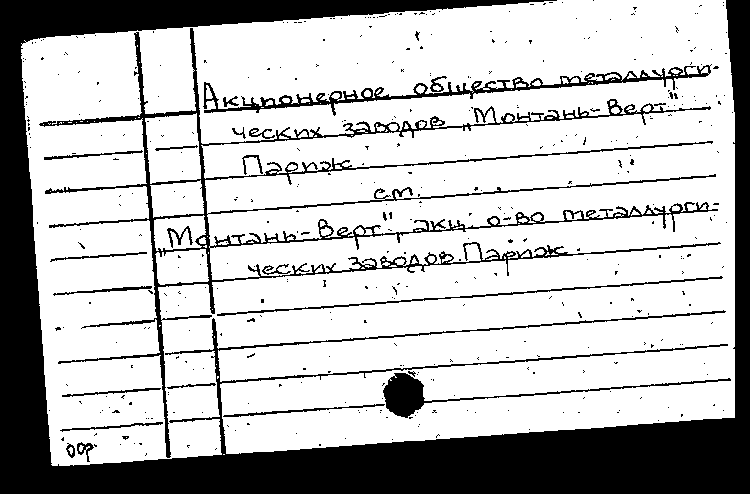 Акционерное общество металлурги-
ческих заводов „Монтань-Верт"
Париж.
см.
„Монтань-Верт", акц. о-во металлурги-
ческих заводов. Париж.